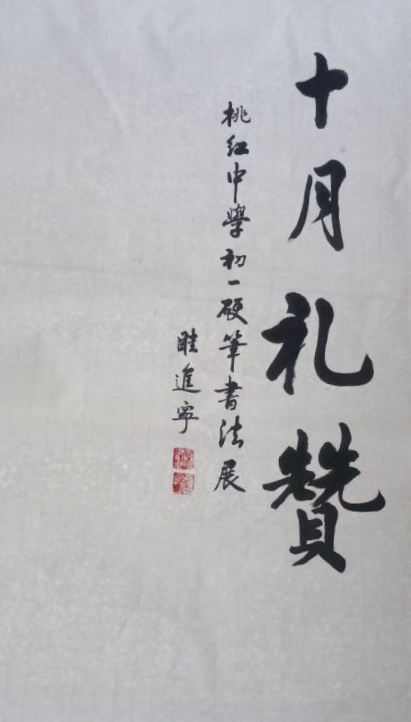 十月礼赞
桃红中學初一硬筆書法展
眭進寧